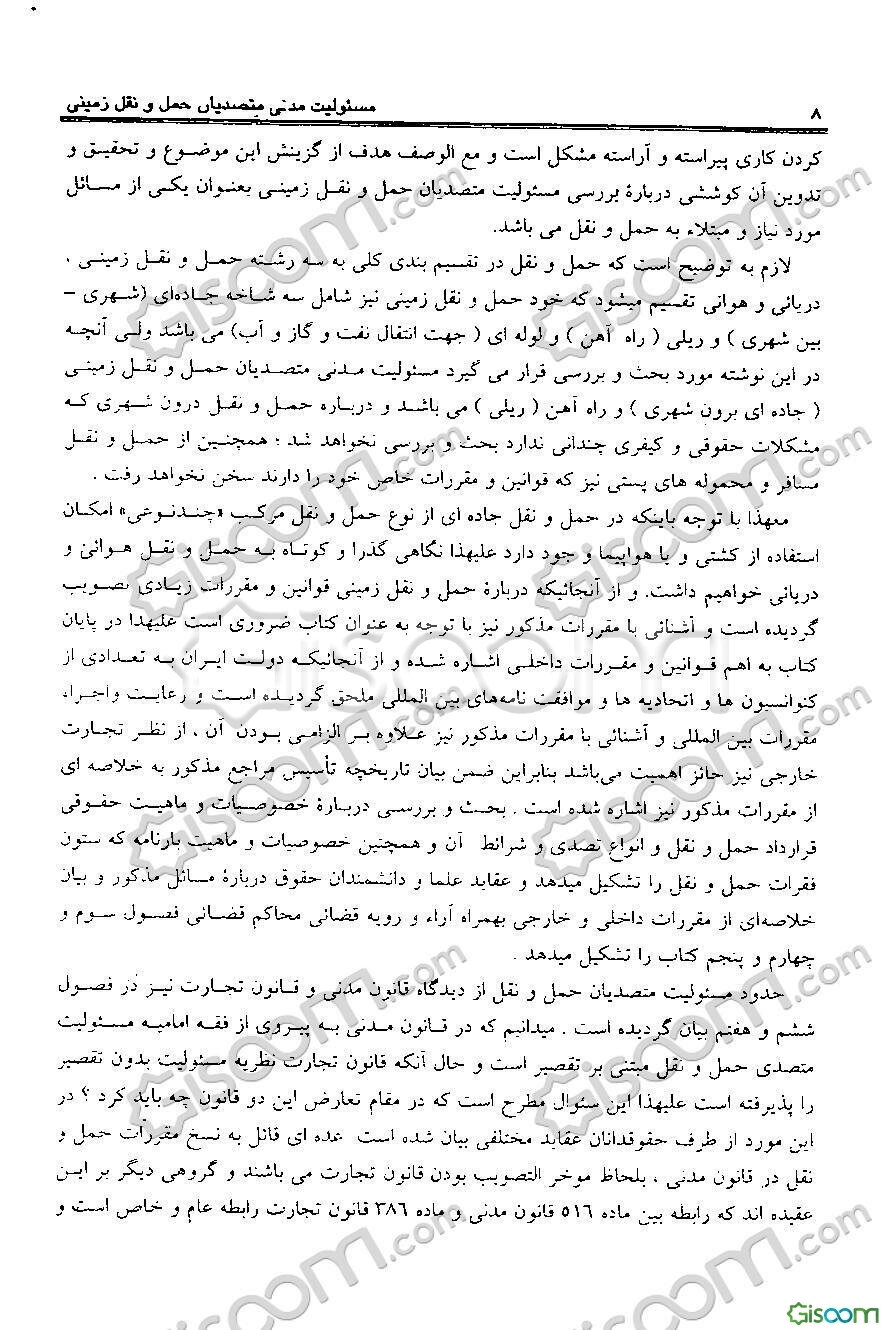 ۸ مسئولیت مدنی متصدیان حمل و نقل زمینی
کردن کاری پیراسته و آراسته مشکل است و مع الوصف هدف از گزینش این موضوع و تحقیق و
تدوین آن کوششی دربارهٔ بررسی مسئولیت متصدیان حمل و نقل زمینی بعنوان یکی از مسائل
مورد نیاز و مبتلاء به حمل و نقل می باشد.
لازم به توضیح است که حمل و نقل در تقسیم بندی کلی به سه رشته حمل و نقل زمینی ،
دریائی و هوانی تقسیم میشود که خود حمل و نقل زمینی نیز شامل سه شاخه جاده‌ای (شهری –
بین شهری ) و ریلی ( راه آهن ) و لوله ای ( جهت انتقال نفت و گاز و آب) می باشد ولی آنچه
در این نوشته مورد بحث و بررسی قرار می گیرد مسئولیت مدنی متصدیان حمل و نقل زمینی
( جاده ای برون شهری ) و راه آهن ( ریلی ) می باشد و درباره حمل و نقل درون شهری که
مشکلات حقوقی و کیفری چندانی ندارد بحث و بررسی نخواهد شد ؛ همچنین از حمل و نقل
مسافر و محموله های پستی نیز که قوانین و مقررات خاص خود را دارند سخن نخواهد رفت .
معهذا با توجه باینکه در حمل و نقل جاده ای از نوع حمل و نقل مرکب «چندنوعی» امکان
استفاده از کشتی و یا هواپیما و جود دارد علیهذا نگاهی گذرا و کوتاه به حمل و نقل هوانی و
دریانی خواهیم داشت. و از آنجائیکه دربارهٔ حمل و نقل زمینی قوانین و مقررات زیادی تصویب
گردیده است و آشنائی با مقررات مذکور نیز با توجه به عنوان کتاب ضروری است علیهذا در پایان
کتاب به اهم قوانین و مقررات داخلی اشاره شده و از آنجائیکه دولت ایران به تعدادی از
کنوانسیون ها و اتحادیه ها و موافقت نامه‌های بین المللی ملحق گردیده است و رعایت واجراء
مقررات بین المللی و آشنائی با مقررات مذکور نیز علاوه بر الزامی بودن آن ، از نظر تجارت
خارجی نیز حائز اهمیت می‌باشد بنابراین ضمن بیان تاریخچه تأسیس مراجع مذکور به خلاصه ای
از مقررات مذکور نیز اشاره شده است . بحث و بررسی دربارهٔ خصوصیات و ماهیت حقوقی
قرارداد حمل و نقل و انواع تصدی و شرائط آن و همچنین خصوصیات و ماهیت بارنامه که ستون
فقرات حمل و نقل را تشکیل میدهد و عقاید علما و دانشمندان حقوق دربارهٔ مسائل مذکور و بیان
خلاصه‌ای از مقررات داخلی و خارجی بهمراه آراء و رویه قضائی محاکم قضائی فصول سوم و
چهارم و پنجم کتاب را تشکیل میدهد .
حدود مسئولیت متصدیان حمل و نقل از دیدگاه قانون مدنی و قانون تجارت نیز در فصول
ششم و هفتم بیان گردیده است . میدانیم که در قانون مدنی به پیروی از فقه امامیه مسئولیت
متصدی حمل و نقل مبتنی بر تقصیر است و حال آنکه قانون تجارت نظریه مسئولیت بدون تقصیر
را پذیرفته است علیهذا این سئوال مطرح است که در مقام تعارض این دو قانون چه باید کرد ؟ در
این مورد از طرف حقوقدانان عقاید مختلفی بیان شده است عده ای قائل به نسخ مقررات حمل و
نقل در قانون مدنی ، بلحاظ موخر التصویب بودن قانون تجارت می باشند و گروهی دیگر بر این
عقیده اند که رابطه بین ماده ۵۱۶ قانون مدنی و ماده ۳۸۶ قانون تجارت رابطه عام و خاص است و
Gisoom.com
Gisoom